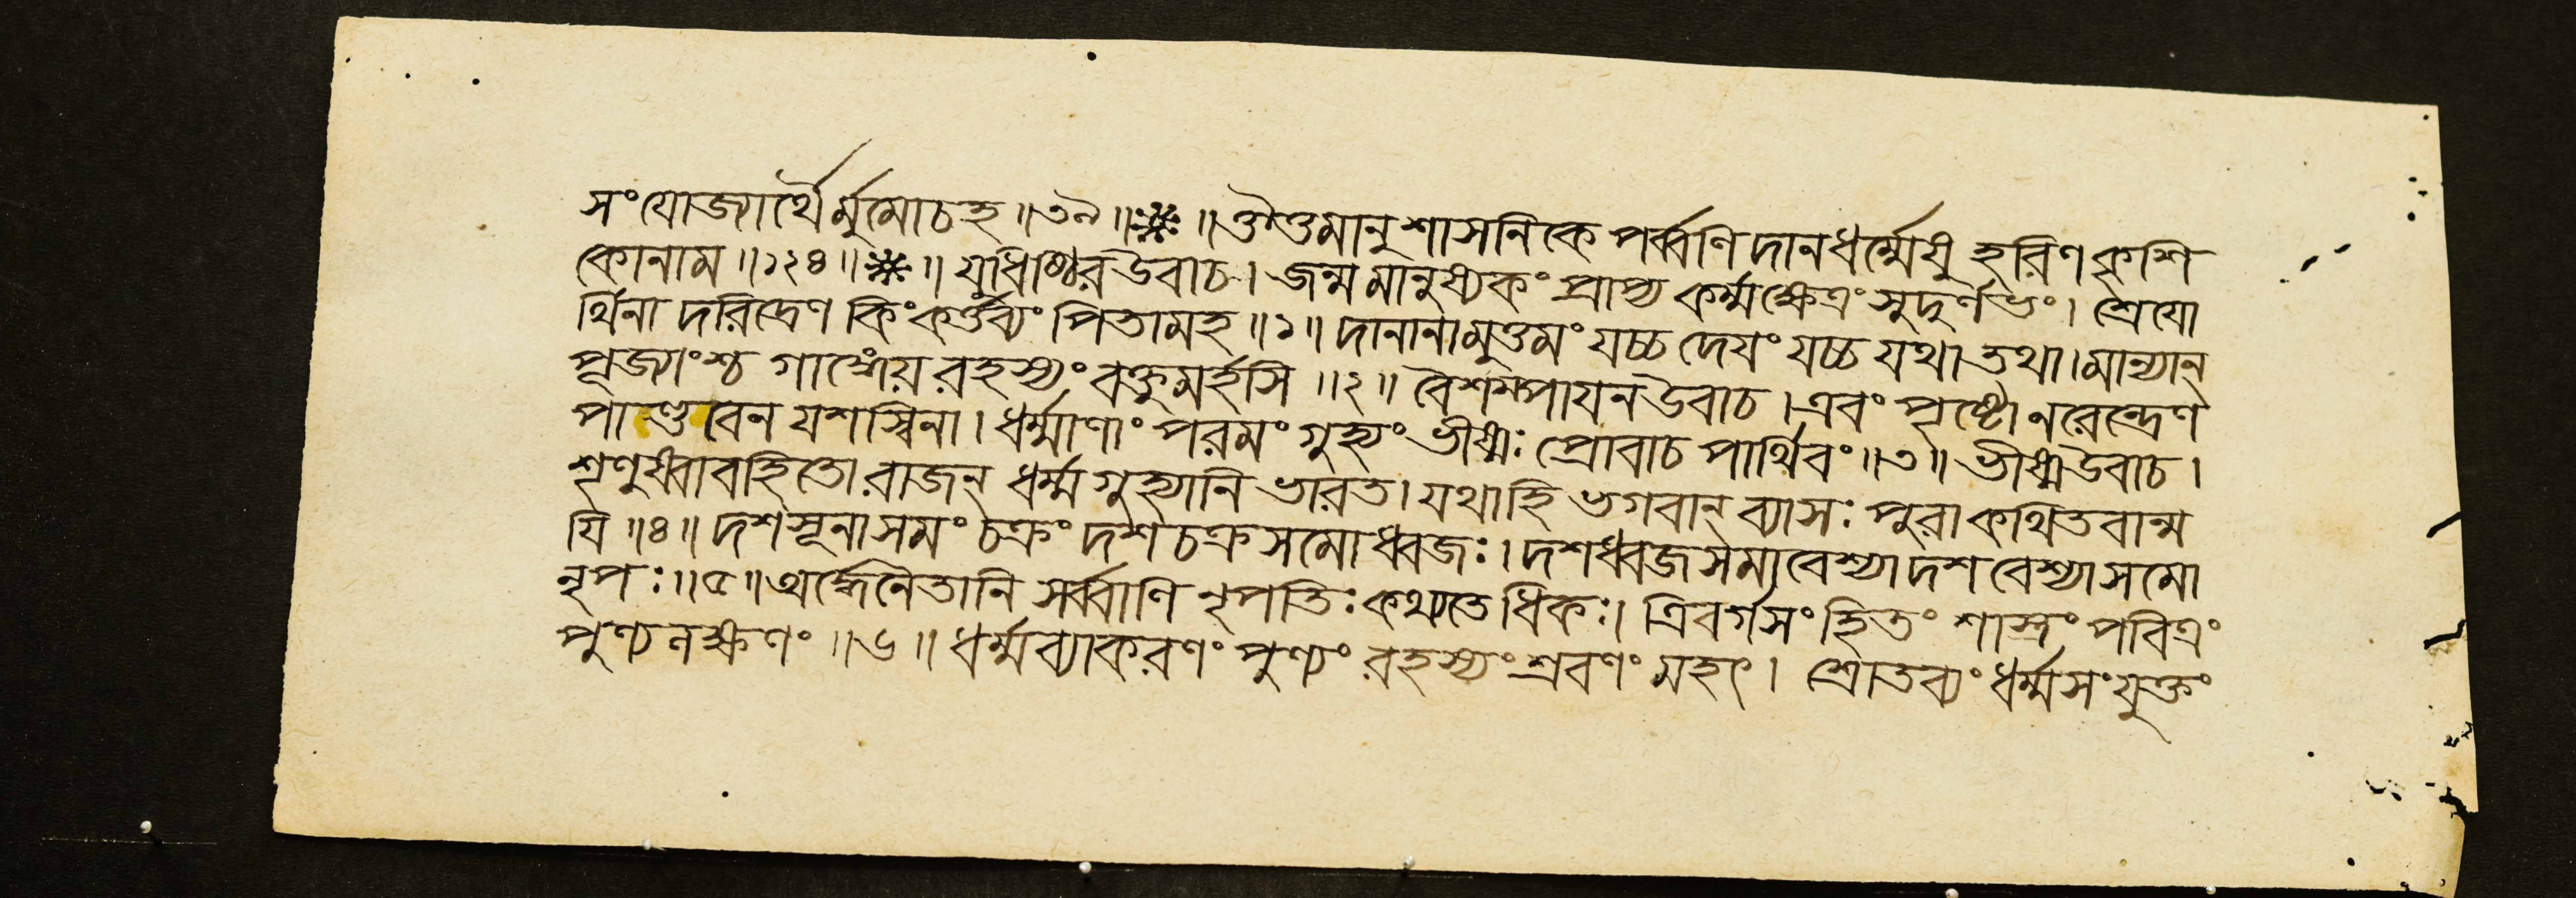 সংযোজ্যার্থৈর্মুমোচহ॥৩৯॥※॥ঔত্তমানুশাসনিকে পর্ব্বণি দানধর্ম্মেষু হরিণকৃশি
কোনাম॥১২৪॥※॥ যুধিষ্ঠির উবাচ। জন্মমানুষ্যকং প্রাপ্য কর্ম্মক্ষেত্রং সুদুর্ণভং। শ্রেযো
র্থিনা দরিদ্রেণ কিংকর্ত্তব্যং পিতামহ॥১॥ দানানামুত্তমং যচ্চ দেযং যচ্চ যথা তথা। মান্যান্
পূজ্যাংশ্চ গাঙ্গেয় রহস্যং বক্তুমর্হসি॥২॥ বৈশম্পাযন উবাচ। এবং পৃষ্টো নরেন্দ্রেণ
পাণ্ডবেন যশস্বিনা। ধর্ম্মাণাং পরমং গুহ্যং ভীষ্মঃ প্রোবাচ পার্থিবং॥৩॥ ভীষ্ম উবাচ।
শৃণুষ্বাবহিতো রাজন্ ধর্ম্মগুহ্যানি ভারত। যথাহি ভগবান্ ব্যাসঃ পুরা কথিতবান্ম
যি॥৪॥ দশসূনাসমং চক্রং দশচক্রসমো ধ্বজঃ। দশধ্বজসমা বেশ্যা দশবেশ্যাসমো
নৃপঃ॥৫॥ অর্দ্ধেনৈতানি সর্ব্বাণি নৃপতিঃ কথ্যতে ধিকঃ। ত্রিবর্গসংহিতং শাস্ত্রং পবিত্রং
পুণ্যনক্ষণং॥৬॥ ধর্ম্মব্যাকরণং পুণ্যং রহস্যং শ্রবণং মহৎ। শ্রোতব্যং ধর্ম্মসংযুক্তং